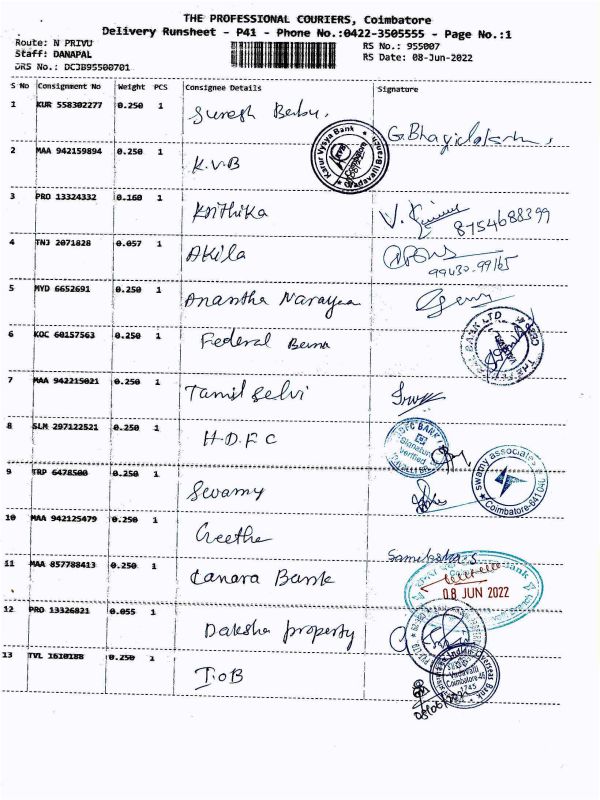 THE PROFESSIONAL COURIERS, Coimbatore
Delivery Runsheet - P41 - Phone No.:0422-3505555 - Page No.:1
Route: N PRIVU
Staff: DANAPAL
DRS No.: DCJB95500701
RS No.: 955007
RS Date: 08-Jun-2022
S No Consignment No Weight PCS Consignee Details Signature
1 KUR 558302277 0.250 1 Suresh Babu. G. Bhagialakshmi
Karur Vysya Bank
Vadavalli Branch
2 MAA 942159894 0.250 1 K.V.B
3 PRO 13324332 0.160 1 Krithika V.
8754688399
4 TNJ 2071828 0.057 1 Akila
99430-99165
5 MYD 6652691 0.250 1 Anantha Narayaa
6 KOC 60157563 0.250 1 Federal
BANK LTD.
7 MAA 942215021 0.250 1 Tamil Selvi
8 SLM 297122521 0.250 1 H.D.F.C
HDFC BANK
Signature
Verified
9 TRP 6478500 0.250 1 Swamy
swamy associates
Coimbatore-641 046
10 MAA 942125479 0.250 1 Geetha
11 MAA 857788413 0.250 1 Canara Bank
08 JUN 2022
12 PRO 13326821 0.055 1 Daksha property
13 TVL 1610188 0.250 1 I.O.B
Indian Overseas Bank
Vadavalli
Coimbatore-46
1745